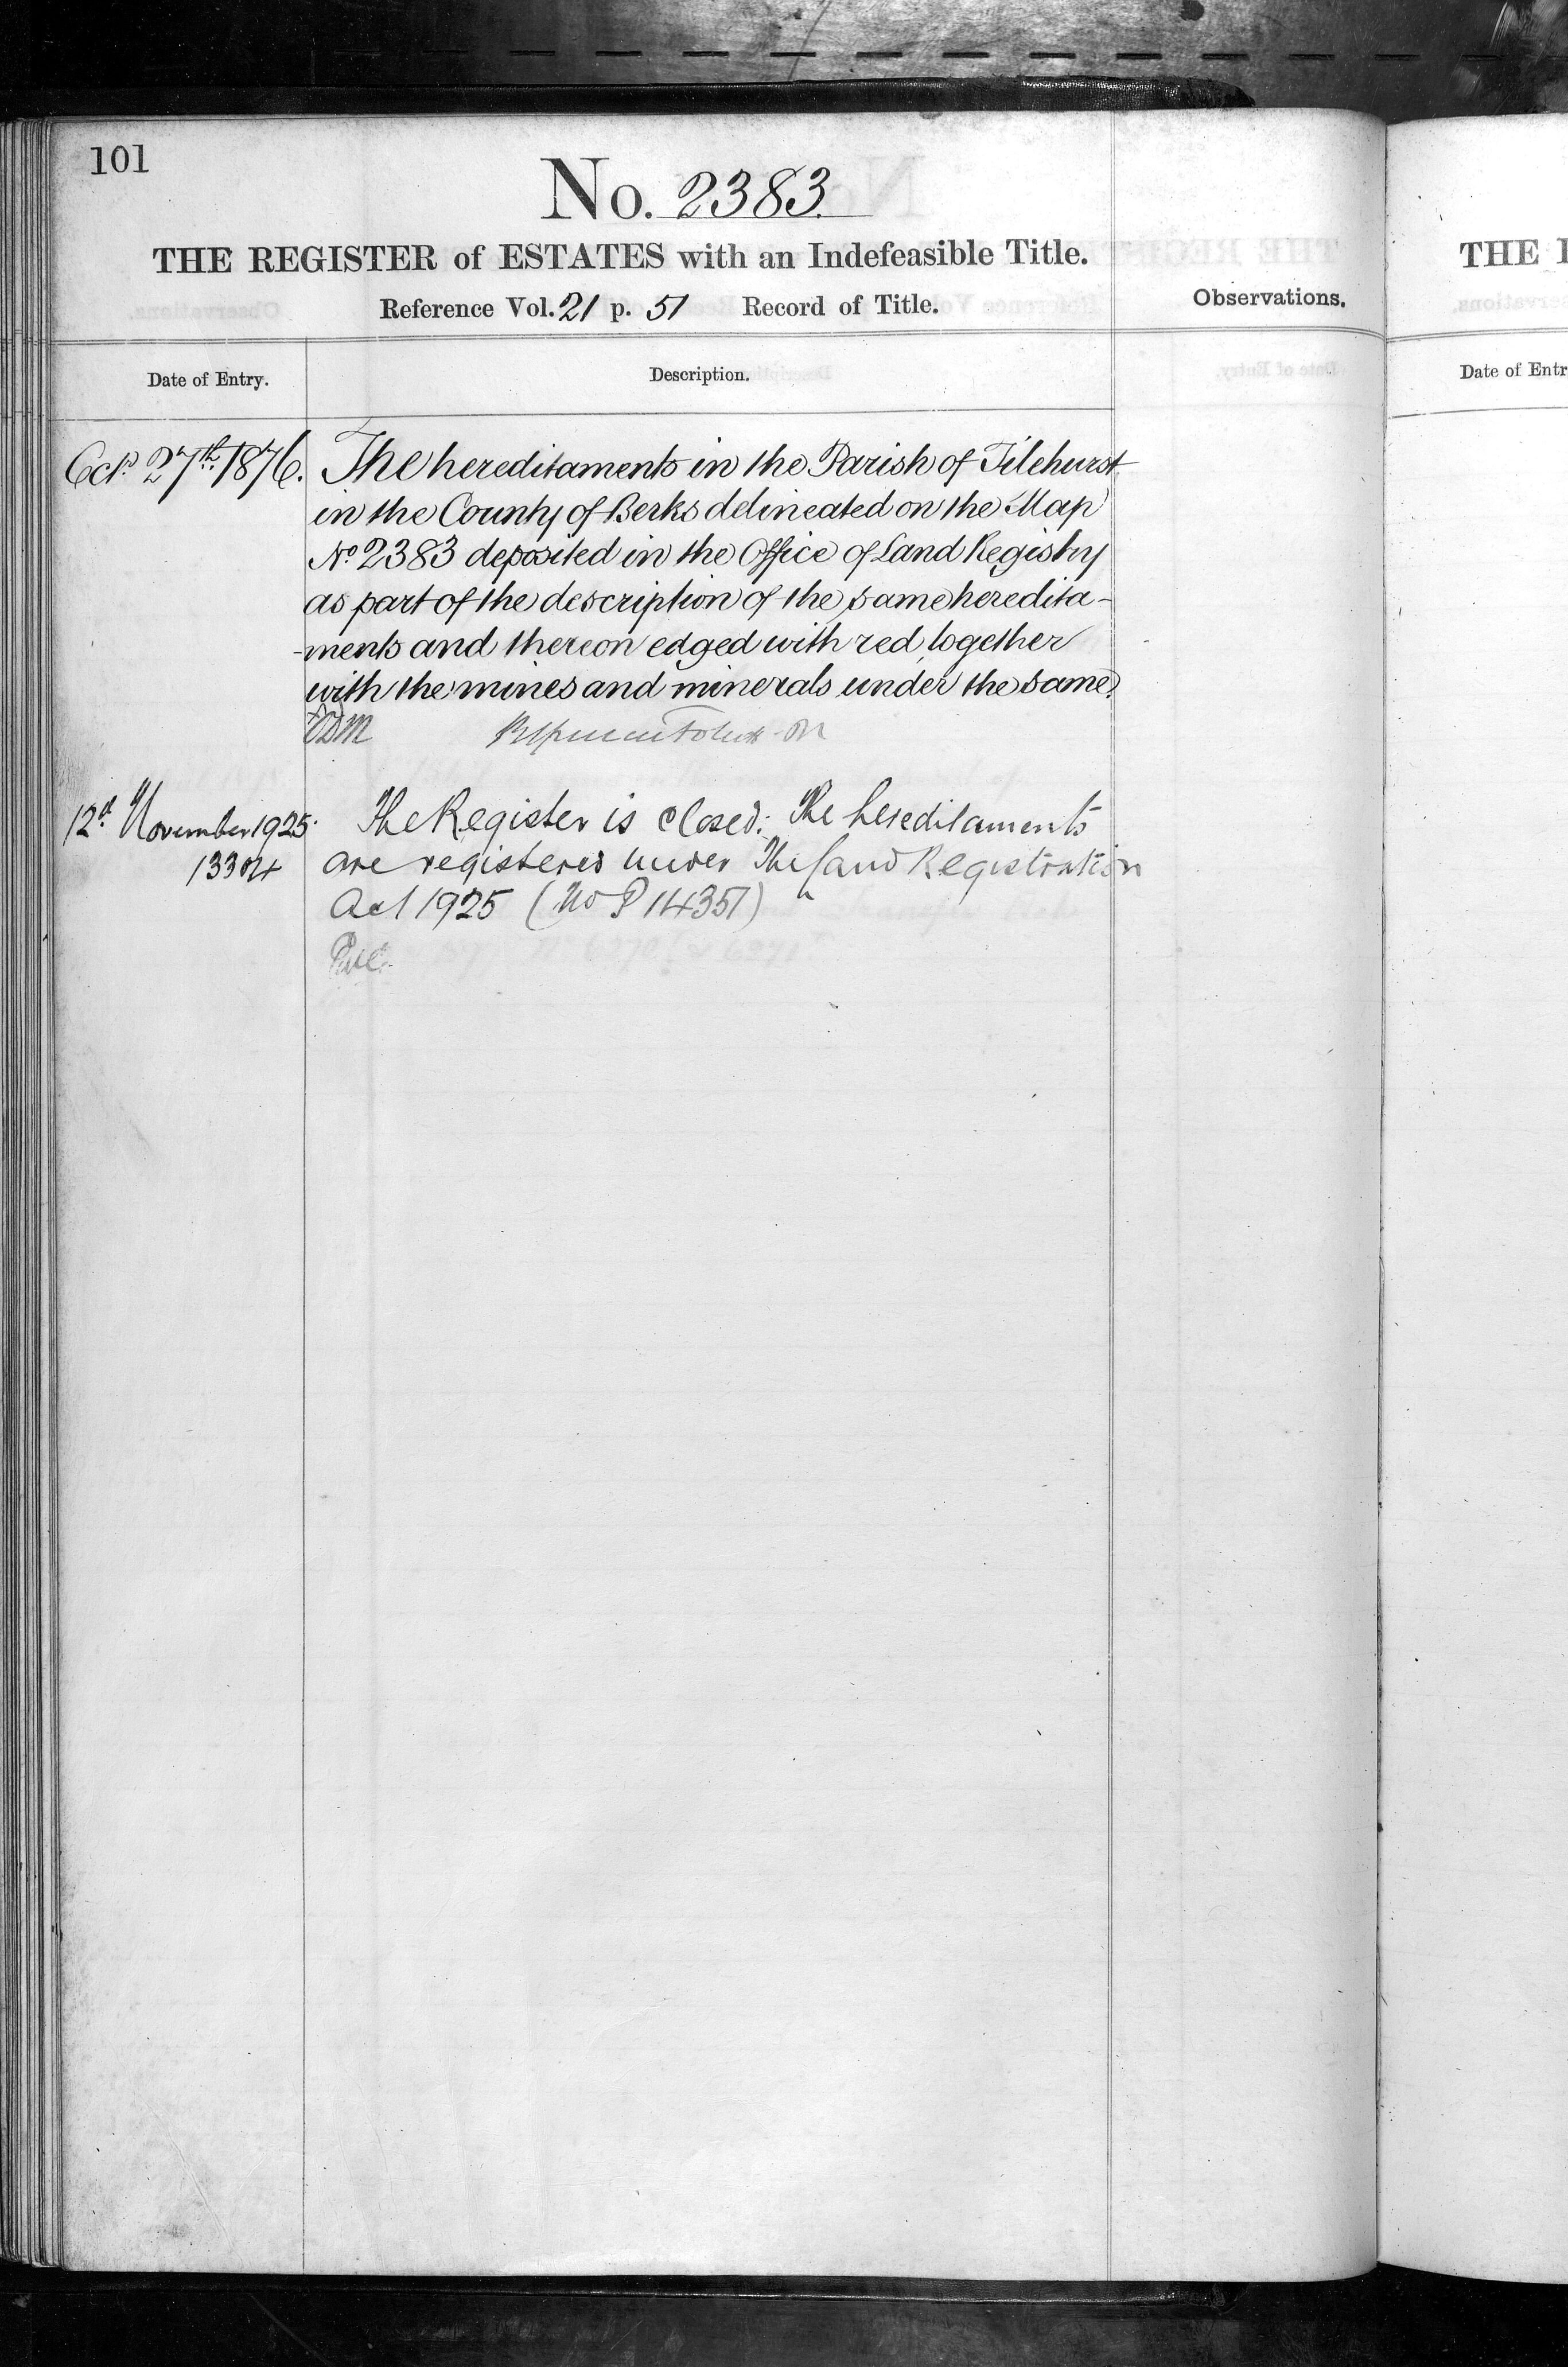 101
No. 2383.
THE REGISTER of ESTATES with an Indefeasible Title.
Reference Vol. 21 p. 51 Record of Title.
Observations.
Date of Entry.
Description.
Oct.r 27th 1876.
The hereditaments in the Parish of Tilehurst
in the County of Berks delineated on the Map
No. 2383 deposited in the Office of Land Registry
as part of the description of the same heredita-
-ments and thereon edged with red, together
with the mines and minerals under the same.
12th November 1925.
13304
The Register is closed. The hereditaments
are registered under The Land Registration
Act 1925 (No P 14351)
THE
Date of Entr